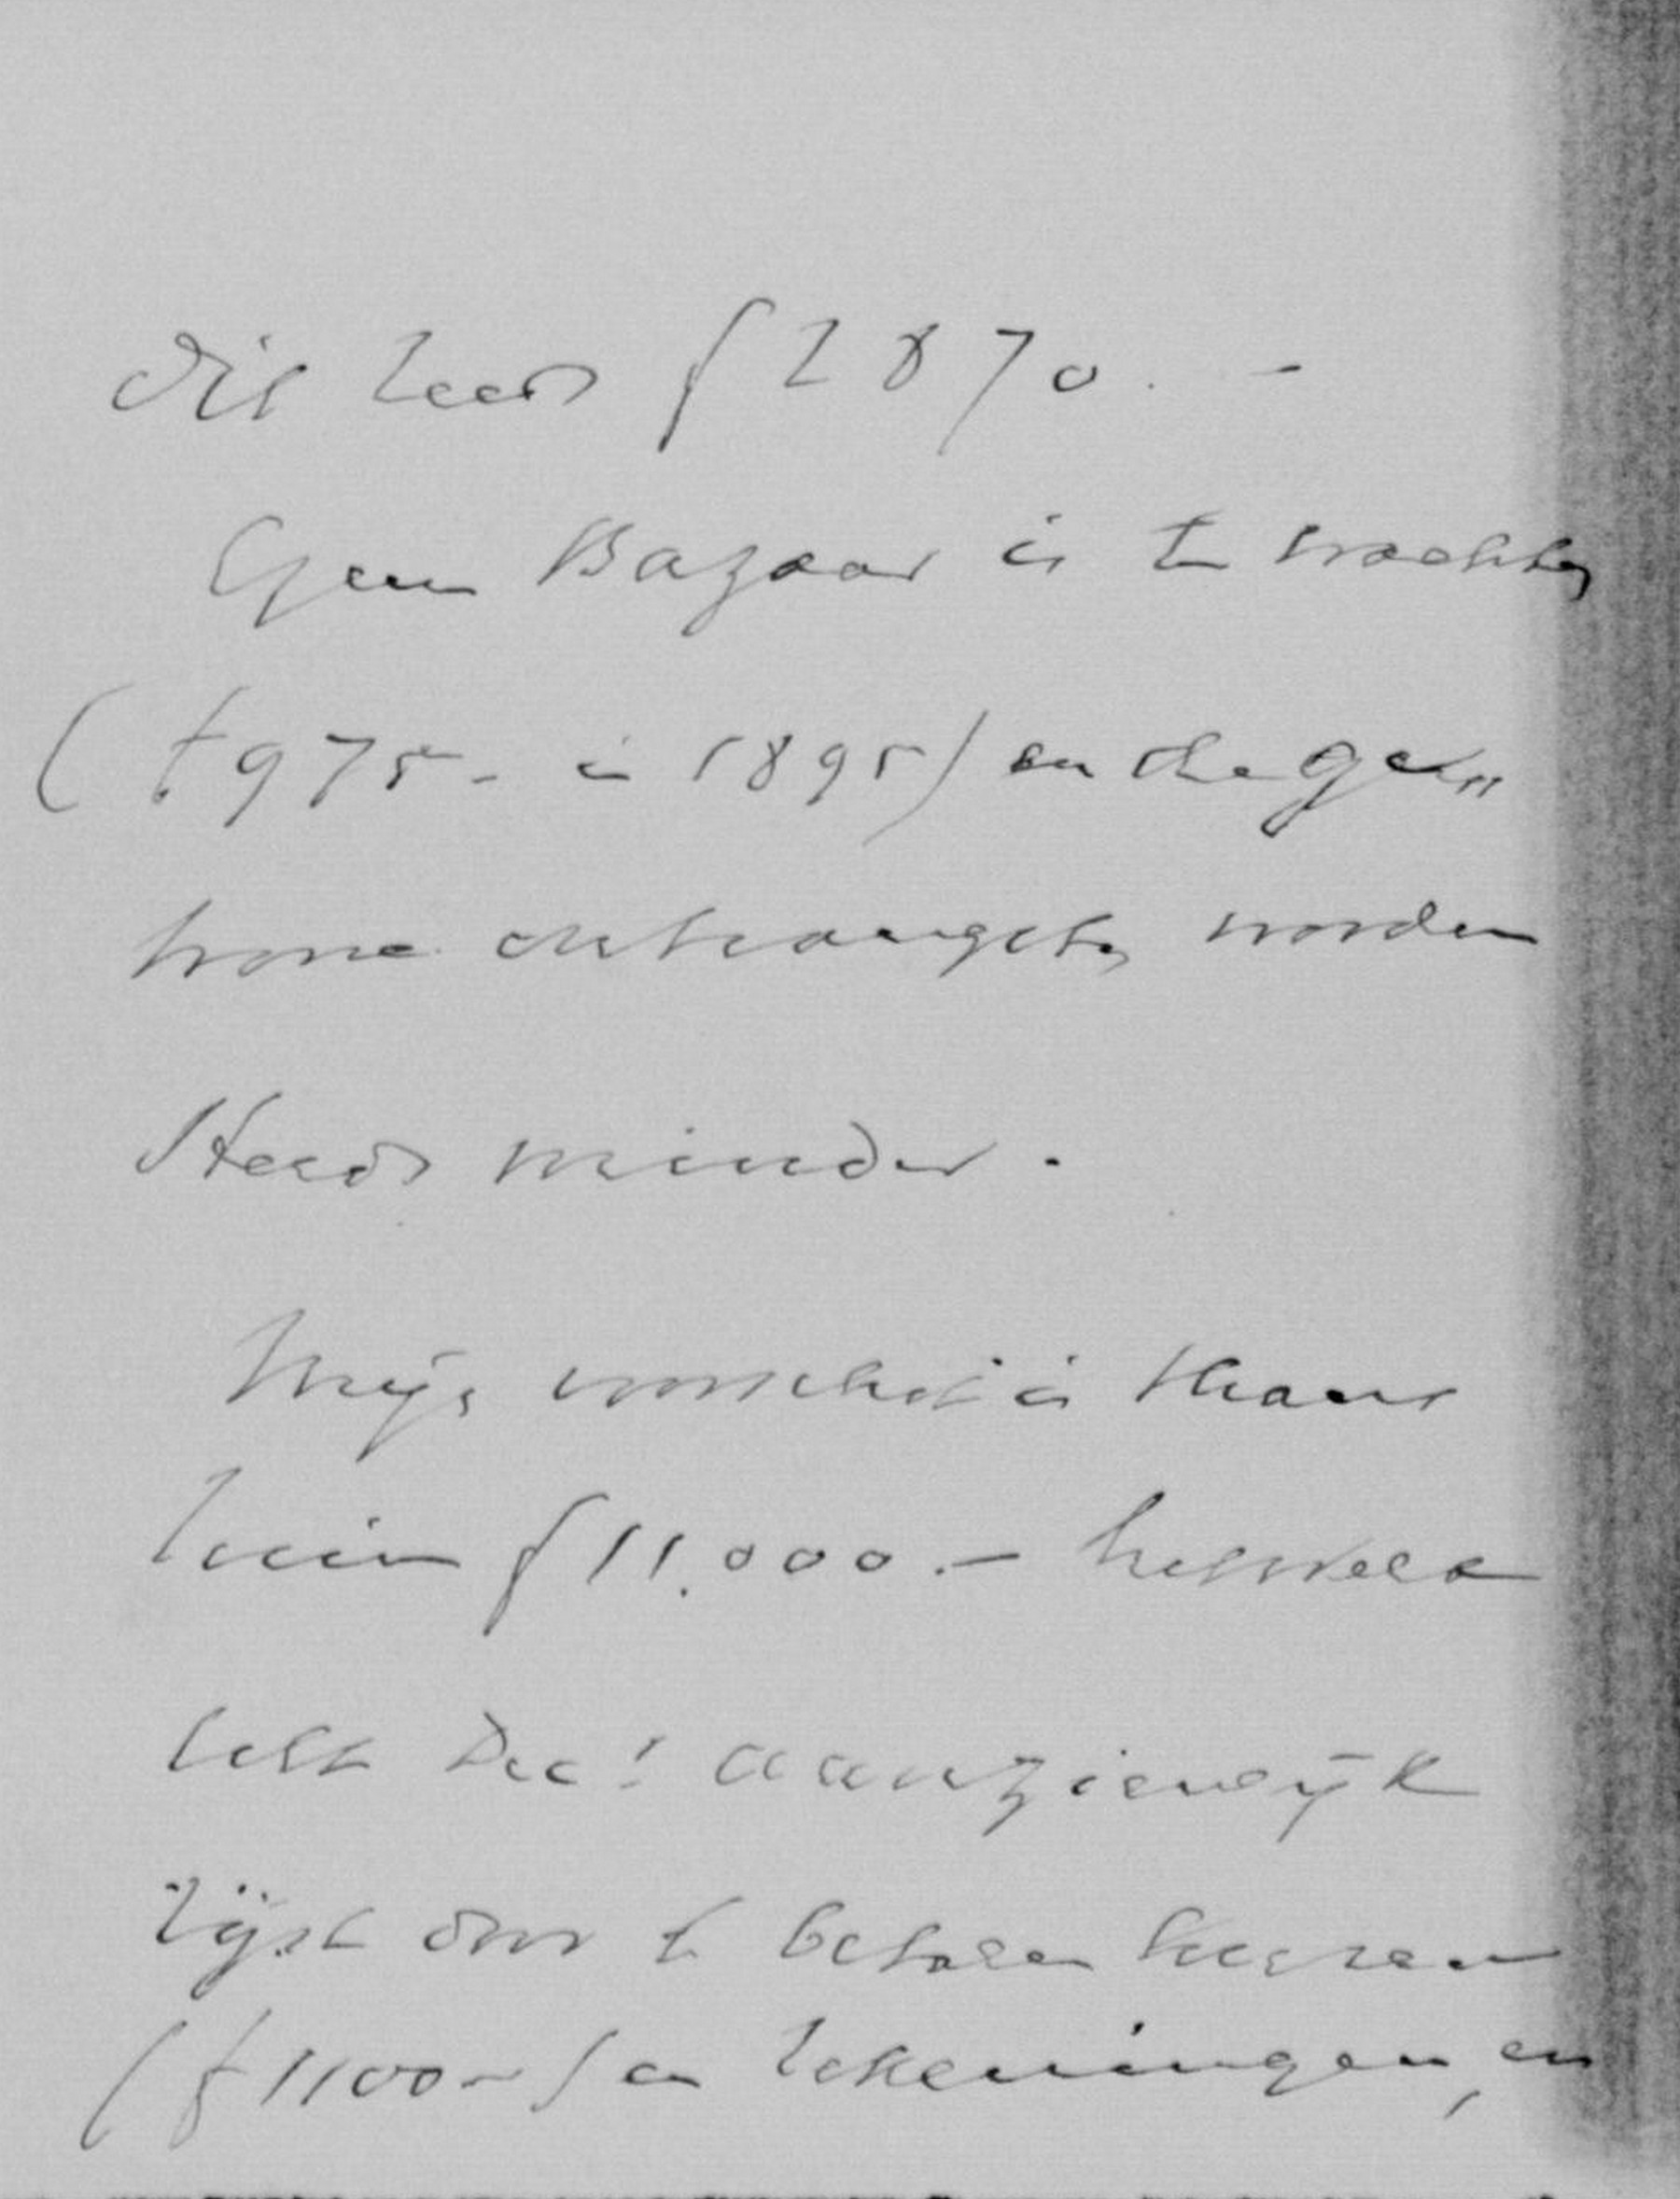 dit reeds f 2870.-
Geen Bazaar is te wachten
(f 975.- in 1895) en de gewone
ontvangsten worden
steeds minder.
Mijn voorschot is thans
ruim f 11.000.- hetwelk
tot Dec! aanzienlijk
rijst door te betalen huren
(f 1100.-) en rekeningen, en